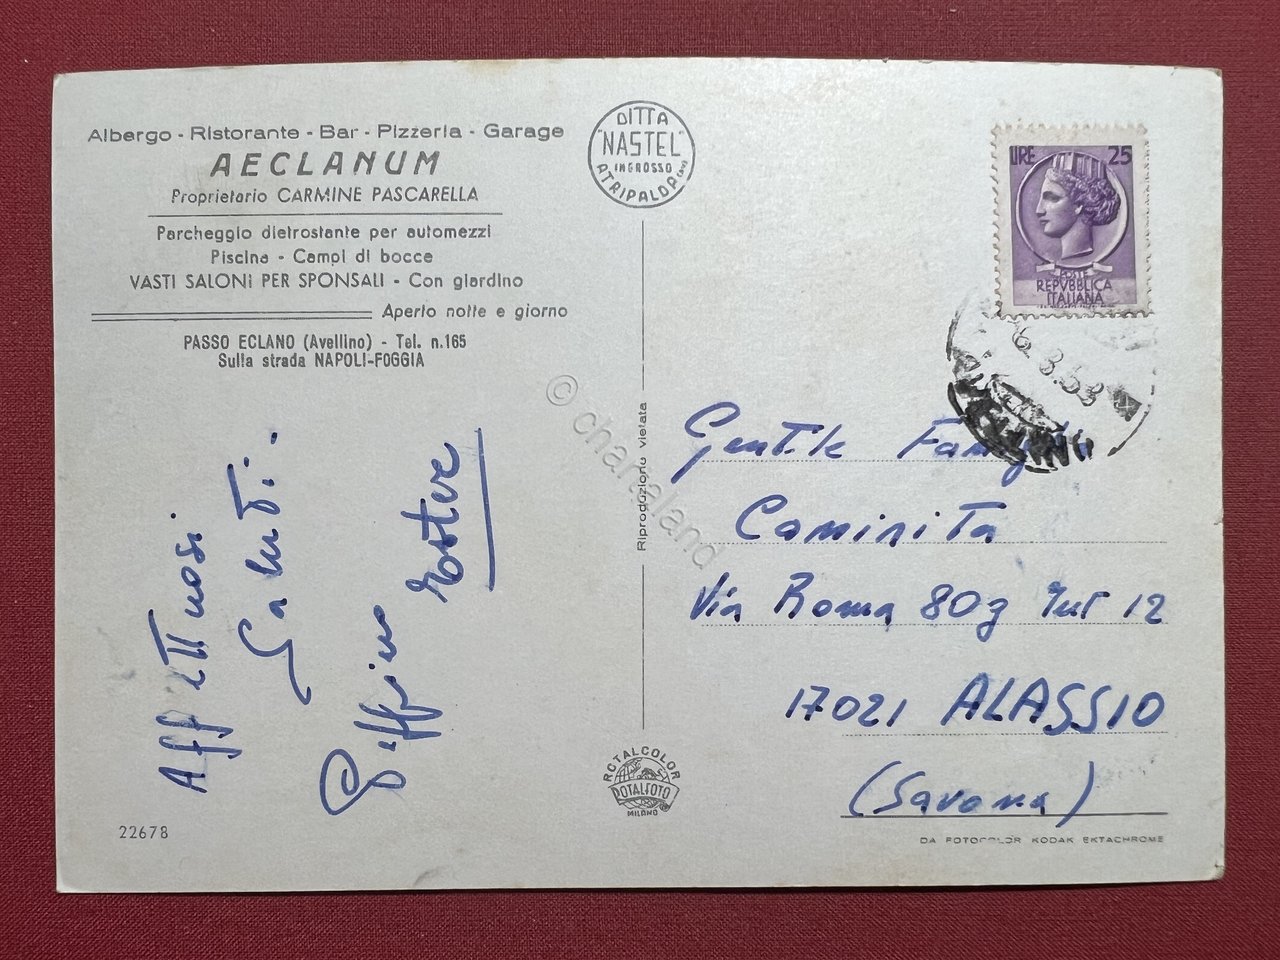 Albergo - Ristorante - Bar - Pizzeria - Garage
AECLANUM
Proprietario CARMINE PASCARELLA
Parcheggio dietrostante per automezzi
Piscina - Campi di bocce
VASTI SALONI PER SPONSALI - Con giardino
Aperto notte e giorno
PASSO ECLANO (Avellino) - Tel. n. 165
Sulla strada NAPOLI-FOGGIA
DITTA
"NASTEL"
INGROSSO
ATRIPALDA
LIRE 25
POSTE
REPVBBLICA
ITALIANA
6.8.68
Affettuosi
Saluti.
Riproduzione vietata
© chartaland
Gentile Famiglia
Caminita
Via Roma 80g Int 12
17021 ALASSIO
(Savona)
ROTALCOLOR
ROTALFOTO
MILANO
22678
DA FOTOCOLOR KODAK EKTACHROME